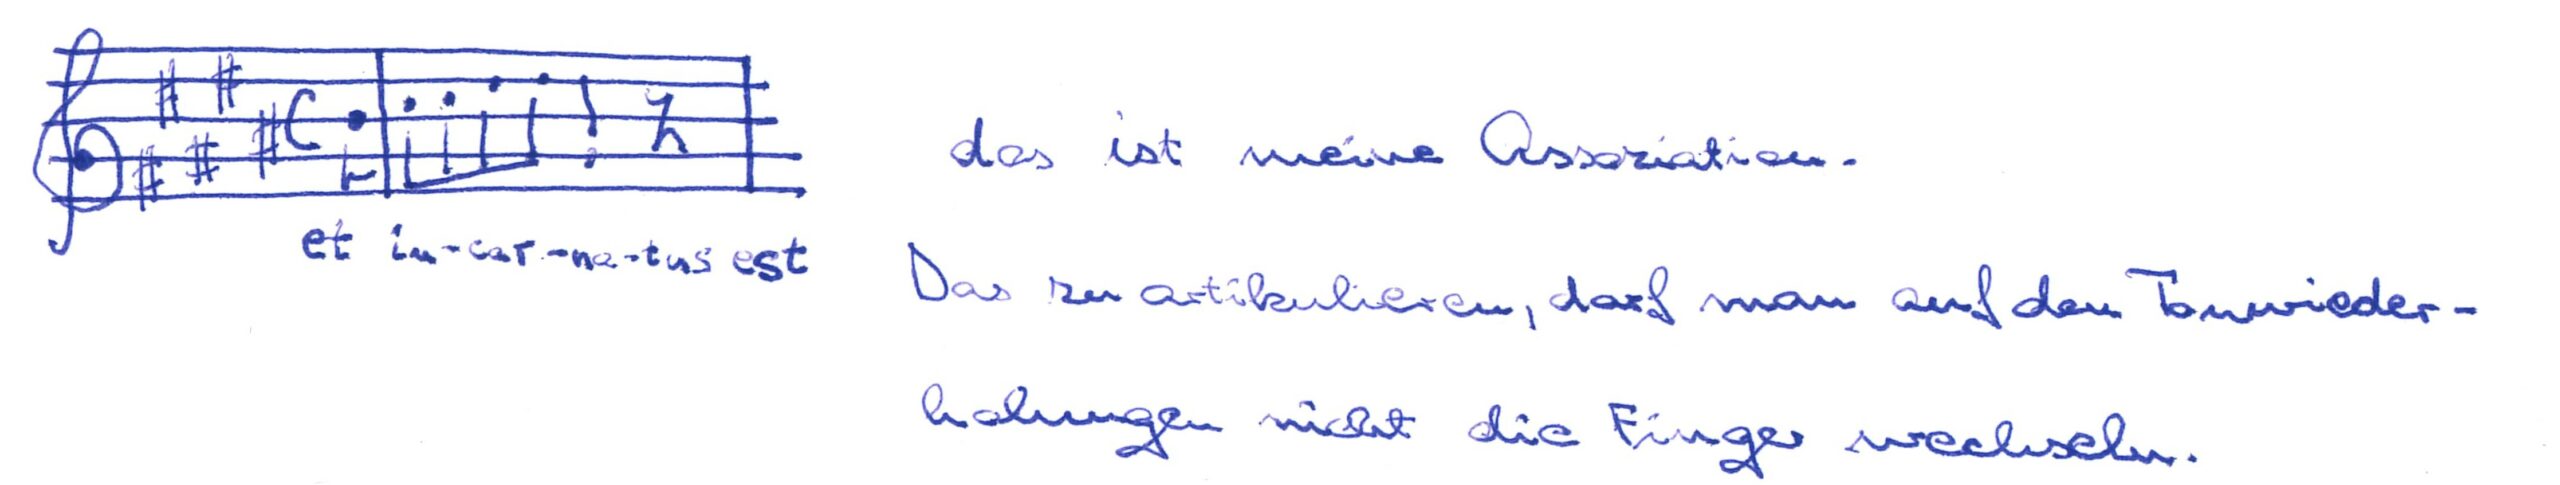 et in-car-na-tus est
das ist meine Assoziation.
Das zu artikulieren, darf man auf den Tonwieder-
holungen nicht die Finger wechseln.